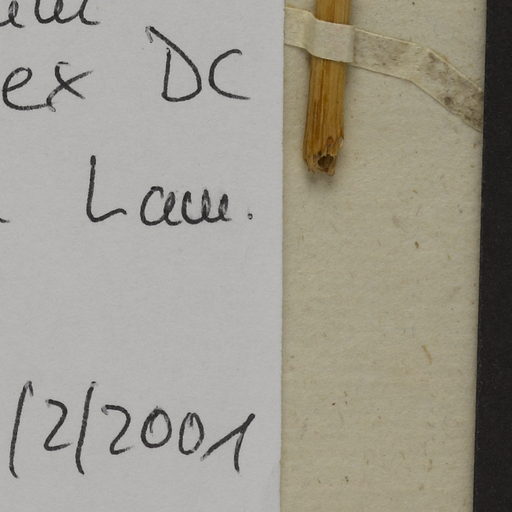 ex DC
Lam.
/2/2001